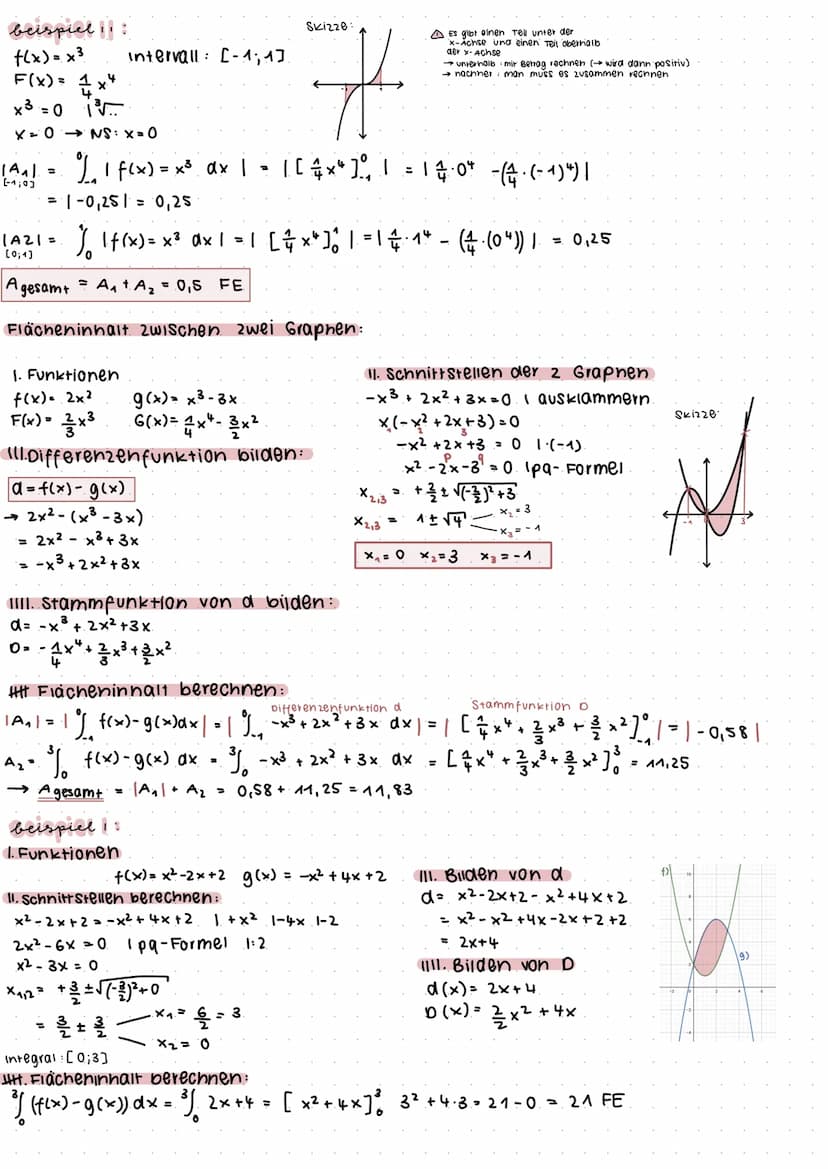 beispiel II:
Skizze:
⚠ Es gibt einen Teil unter der
x-Achse und einen Teil oberhalb
der x-Achse
→ unterhalb: mir Betrag rechnen (→ wird dann positiv)
→ nachher: man muss es zusammen rechnen
f(x) = x³ Intervall: [-1;1]
F(x) = 1/4 x⁴
x³ = 0 | ³√..
x = 0 → NS: x=0
|A₁| = ⁰∫₋₁ | f(x) = x³ dx | = | [1/4 x⁴]⁰₋₁ | = | 1/4 · 0⁴ - (1/4 · (-1)⁴) |
[-1;0]
= | -0,25 | = 0,25
|A2| = ¹∫₀ | f(x) = x³ dx | = | [1/4 x⁴]¹₀ | = | 1/4 · 1⁴ - (1/4 · (0⁴)) | = 0,25
[0;1]
Agesamt = A₁ + A₂ = 0,5 FE
Flächeninhalt zwischen zwei Graphen:
I. Funktionen
f(x) = 2x² g(x) = x³ - 3x
F(x) = 2/3 x³ G(x) = 1/4 x⁴ - 3/2 x²
III. Differenzenfunktion bilden:
d = f(x) - g(x)
→ 2x² - (x³ - 3x)
= 2x² - x³ + 3x
= -x³ + 2x² + 3x
II. Schnittstellen der 2 Graphen
-x³ + 2x² + 3x = 0 | ausklammern
x(-x² + 2x + 3) = 0
1 2 3
-x² + 2x + 3 = 0 | ·(-1)
p q
x² - 2x - 3 = 0 | pq-Formel
x₂,₃ = + 2/2 ± √((-2/2)² + 3)
x₂,₃ = 1 ± √4 x₂ = 3
x₃ = -1
x₁ = 0 x₂ = 3 x₃ = -1
Skizze:
-1 3
IIII. Stammfunktion von d bilden:
d = -x³ + 2x² + 3x
D = - 1/4 x⁴ + 2/3 x³ + 3/2 x²
IIIII Flächeninhalt berechnen:
Differenzenfunktion d Stammfunktion D
|A₁| = | ⁰∫₋₁ f(x) - g(x) dx | = | ⁰∫₋₁ -x³ + 2x² + 3x dx | = | [1/4 x⁴ + 2/3 x³ + 3/2 x²]⁰₋₁ | = | -0,58 |
A₂ = ³∫₀ f(x) - g(x) dx = ³∫₀ -x³ + 2x² + 3x dx = [1/4 x⁴ + 2/3 x³ + 3/2 x²]³₀ = 11,25
→ Agesamt = |A₁| + A₂ = 0,58 + 11,25 = 11,83
beispiel I:
I. Funktionen
f(x) = x² - 2x + 2 g(x) = -x² + 4x + 2
II. Schnittstellen berechnen:
x² - 2x + 2 = -x² + 4x + 2 | +x² | -4x | -2
2x² - 6x = 0 | pq-Formel | :2
x² - 3x = 0
x₁,₂ = + 3/2 ± √((-3/2)² + 0)
= 3/2 ± 3/2 x₁ = 6/2 = 3
x₂ = 0
integral: [0;3]
III. Bilden von d
d = x² - 2x + 2 - x² + 4x + 2
= x² - x² + 4x - 2x + 2 + 2
= 2x + 4
IIII. Bilden von D
d(x) = 2x + 4
D(x) = 2/2 x² + 4x
f)
g)
IIIII. Flächeninhalt berechnen:
³∫₀ (f(x) - g(x)) dx = ³∫₀ 2x + 4 = [x² + 4x]³₀ 3² + 4·3 = 21 - 0 = 21 FE